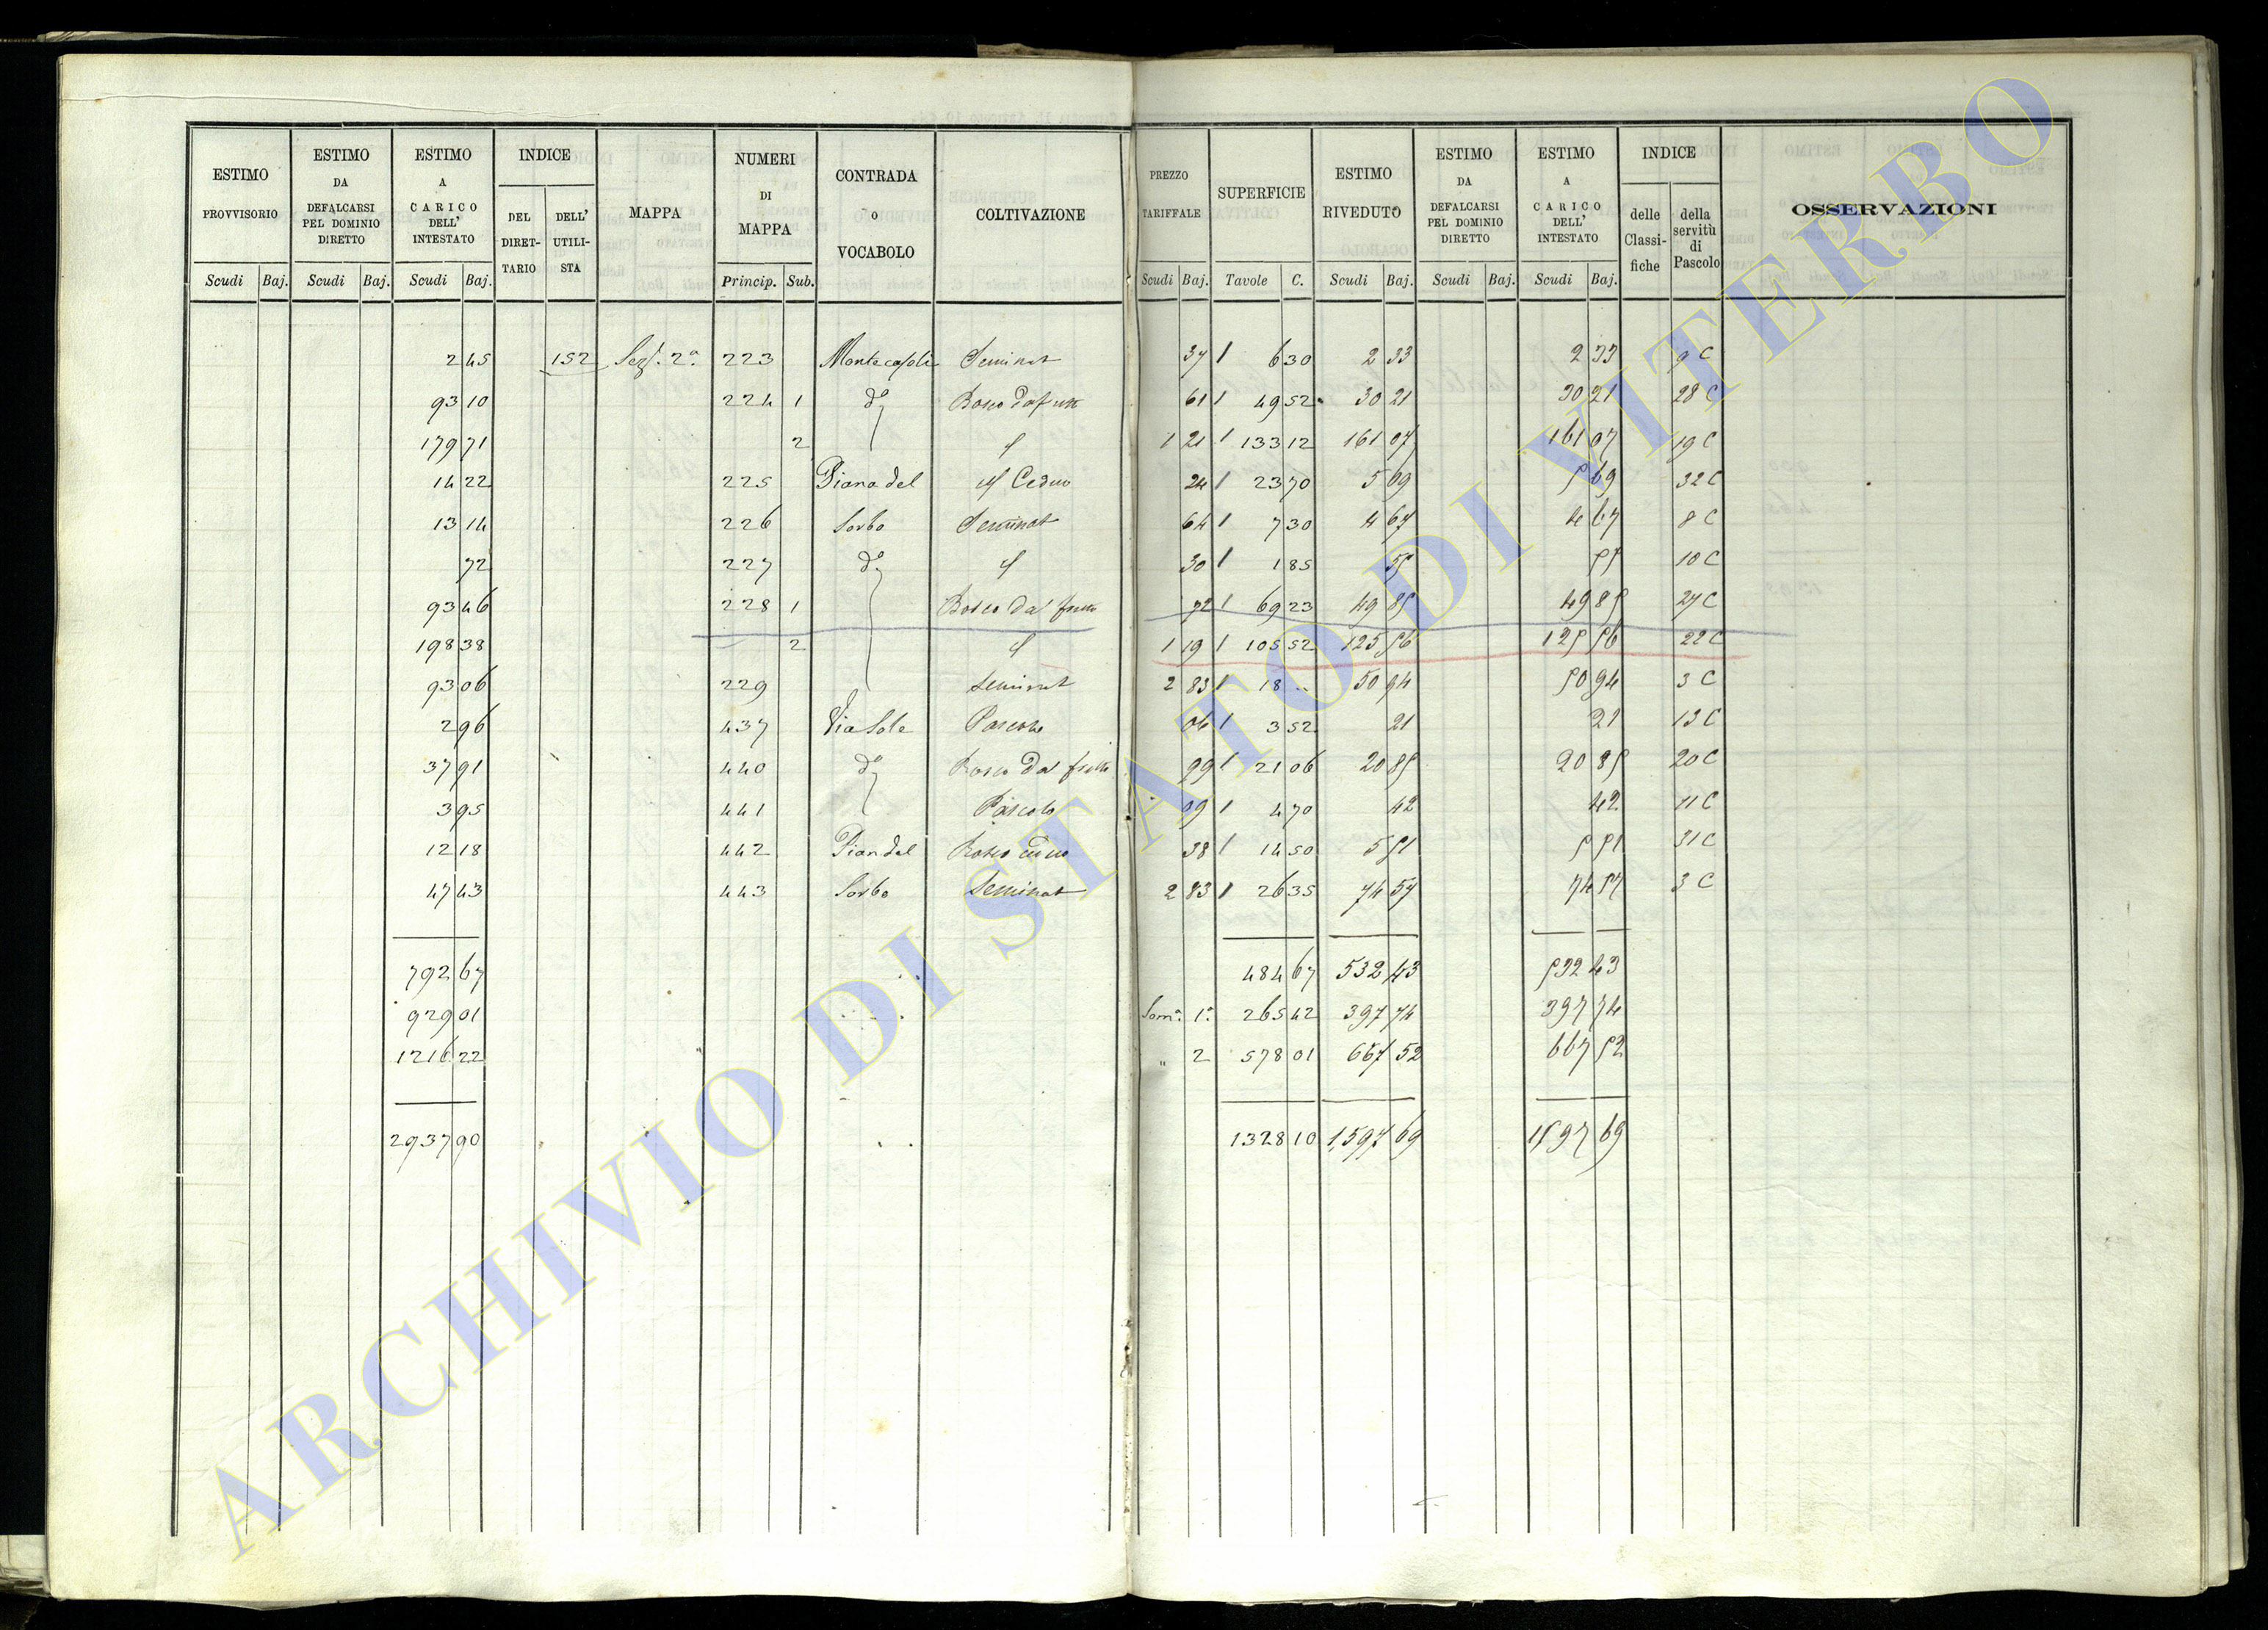 ESTIMO PROVVISORIO Scudi Baj.
ESTIMO DA DEFALCARSI PEL DOMINIO DIRETTO Scudi Baj.
ESTIMO A CARICO DELL' INTESTATO Scudi Baj.
INDICE DEL DIRET-TARIO DELL' UTILI-STA
MAPPA
NUMERI DI MAPPA Princip. Sub.
CONTRADA o VOCABOLO
COLTIVAZIONE
PREZZO TARIFFALE Scudi Baj.
SUPERFICIE Tavole C.
ESTIMO RIVEDUTO Scudi Baj.
ESTIMO DA DEFALCARSI PEL DOMINIO DIRETTO Scudi Baj.
ESTIMO A CARICO DELL' INTESTATO Scudi Baj.
INDICE delle Classi-fiche della servitù di Pascolo
OSSERVAZIONI
2 45 152 Sez. 2a 223 Seminat 37 1 6 30 2 33 2 33 9 C
93 10 224 1 do Bosco da frutt 61 1 49 52 30 21 30 21 28 C
179 71 2 1 21 1 133 12 161 07 161 07 19 C
14 22 225 Piana del Ceduo 24 1 23 70 5 69 5 69 32 C
13 14 226 Sorbo Seminat 64 1 7 30 4 67 4 67 8 C
72 227 do 30 1 1 85 55 55 10 C
93 46 228 1 Bosco da frutto 72 1 69 23 49 85 49 85 27 C
198 38 2 1 19 1 105 52 125 56 125 56 22 C
93 06 229 Seminat 2 83 1 18 .. 50 94 50 94 3 C
2 96 437 Via Sole Pascolo 06 1 3 52 21 21 13 C
37 91 440 do Bosco da frutto 99 1 21 06 20 85 20 85 20 C
3 95 441 Pascolo 09 1 4 70 42 42 11 C
12 18 442 Pian del Bosco ceduo 38 1 14 50 5 51 5 51 31 C
47 43 443 Sorbo Seminat 2 83 1 26 35 74 57 74 57 3 C
792 67 484 67 532 43 532 43
929 01 Som. 1a 265 42 397 74 397 74
1216 22 " 2 578 01 667 52 667 52
2937 90 1328 10 1597 69 1597 69
ARCHIVIO DI STATO DI VITERBO